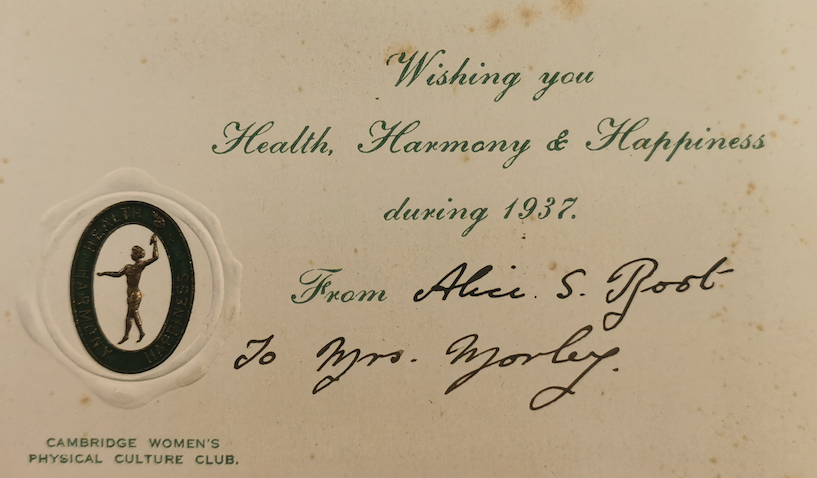 Wishing you
Health, Harmony & Happiness
during 1937.
From Alice S. Root
To Mrs. Morley.
HARMONY HEALTH HAPPINESS
CAMBRIDGE WOMEN'S
PHYSICAL CULTURE CLUB.